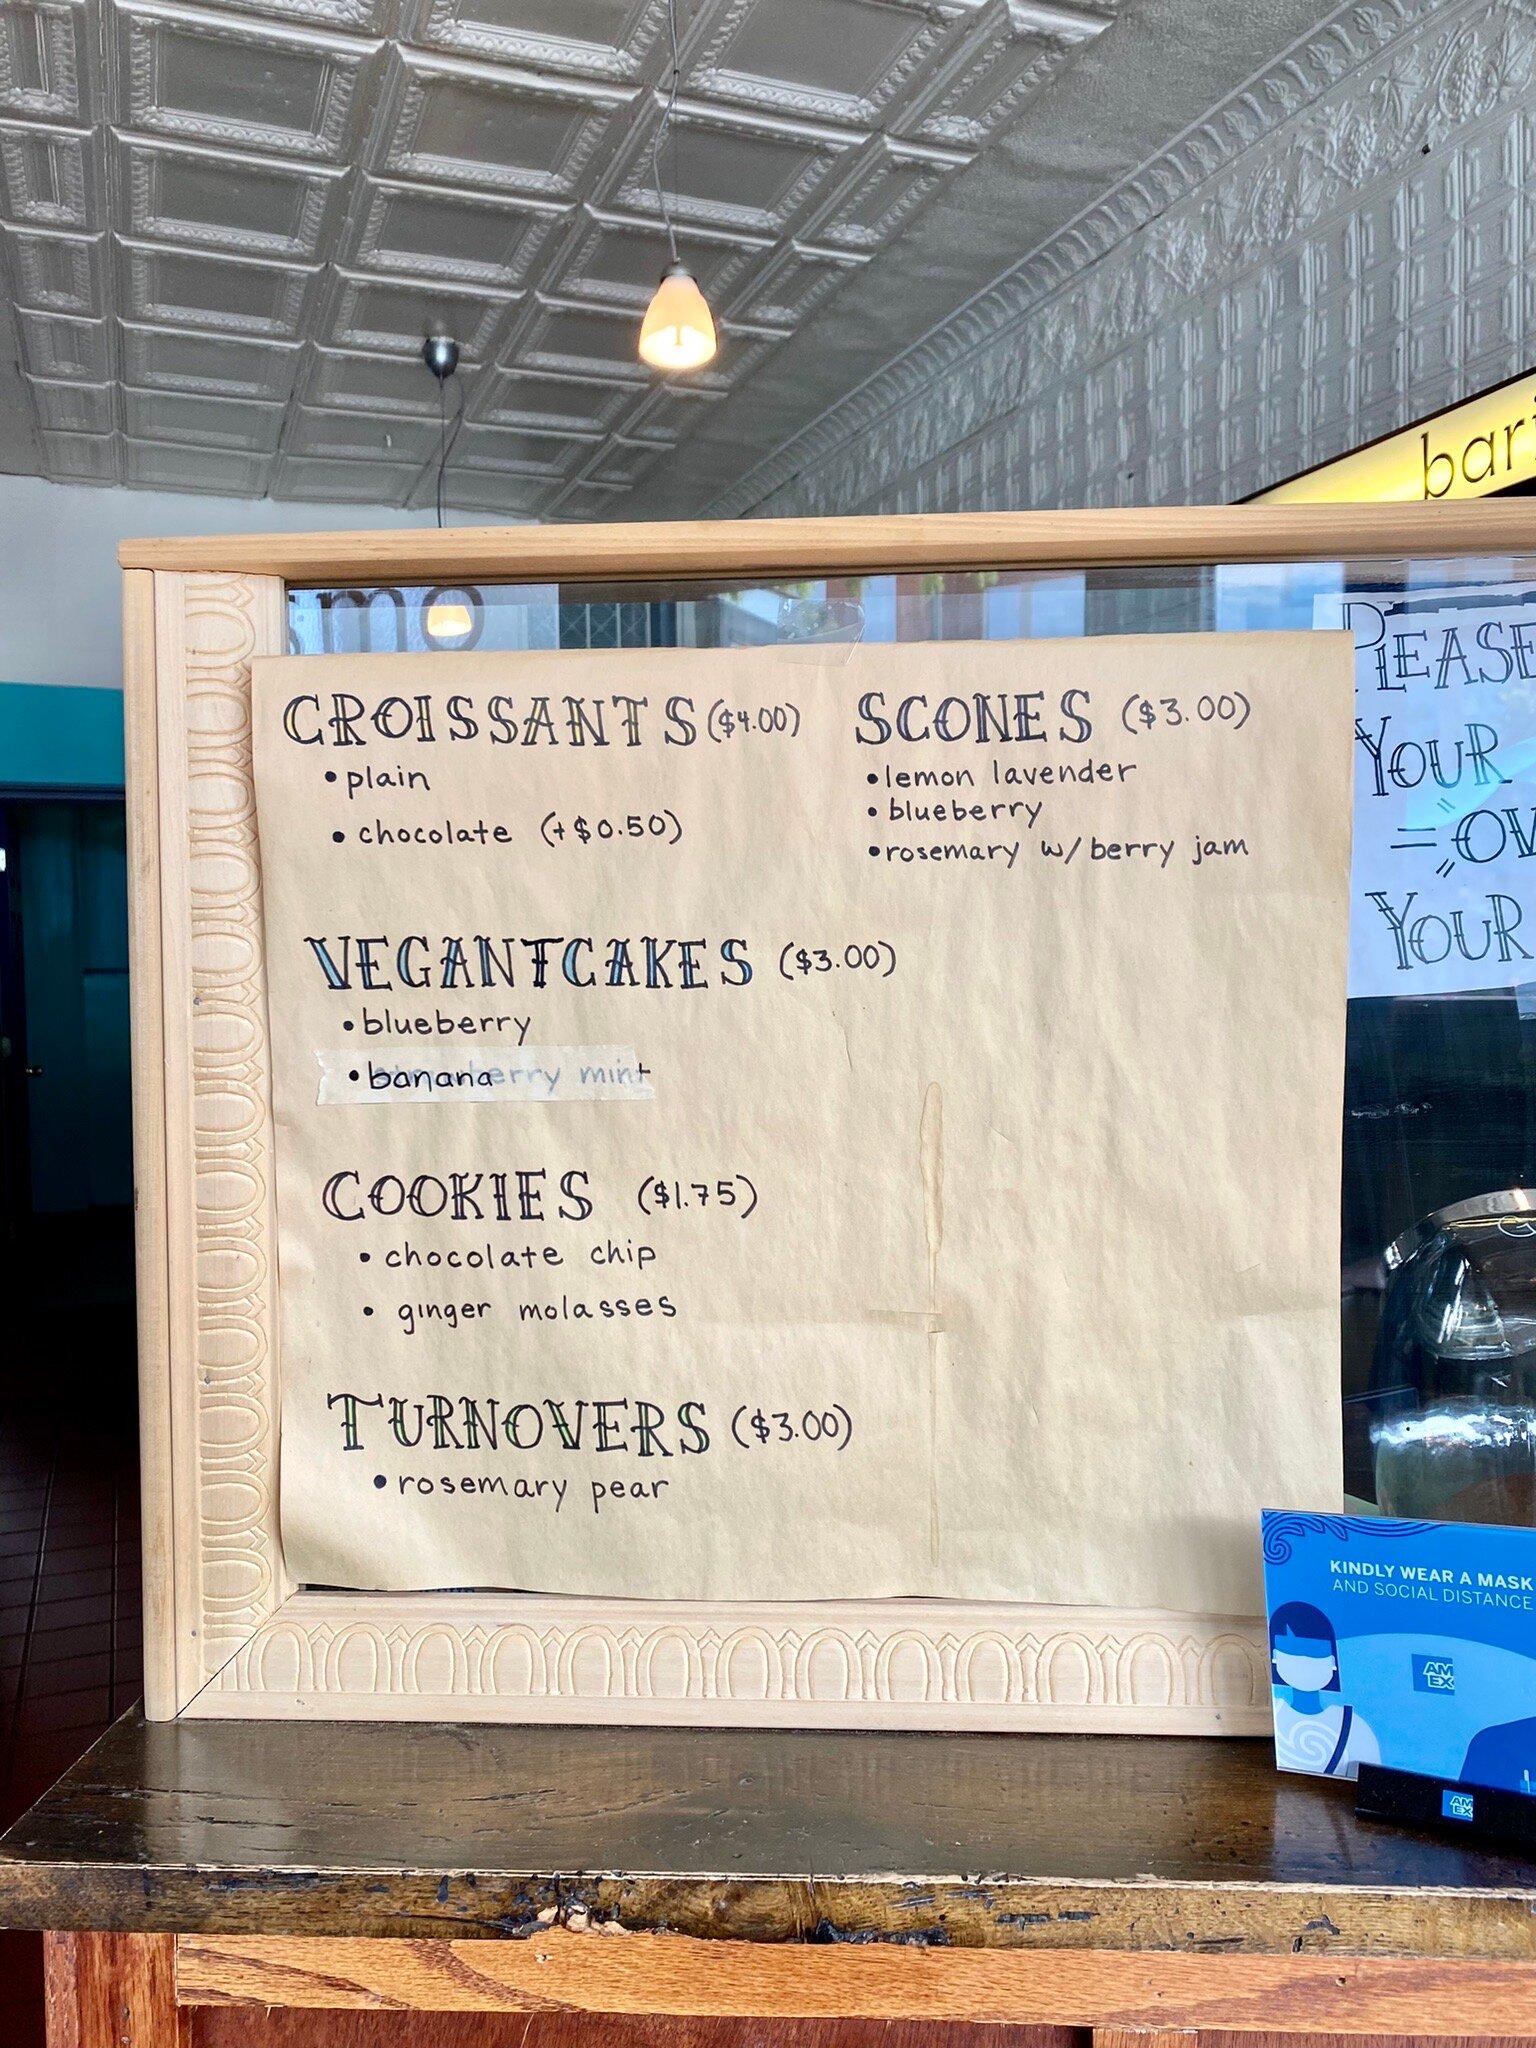 bari
CROISSANTS ($4.00)
• plain
• chocolate (+$0.50)
VEGANTCAKES ($3.00)
• blueberry
• banana
COOKIES ($1.75)
• chocolate chip
• ginger molasses
TURNOVERS ($3.00)
• rosemary pear
SCONES ($3.00)
• lemon lavender
• blueberry
• rosemary w/ berry jam
PLEASE
YOUR
= OV
YOUR
KINDLY WEAR A MASK
AND SOCIAL DISTANCE
AM
EX
AM
EX